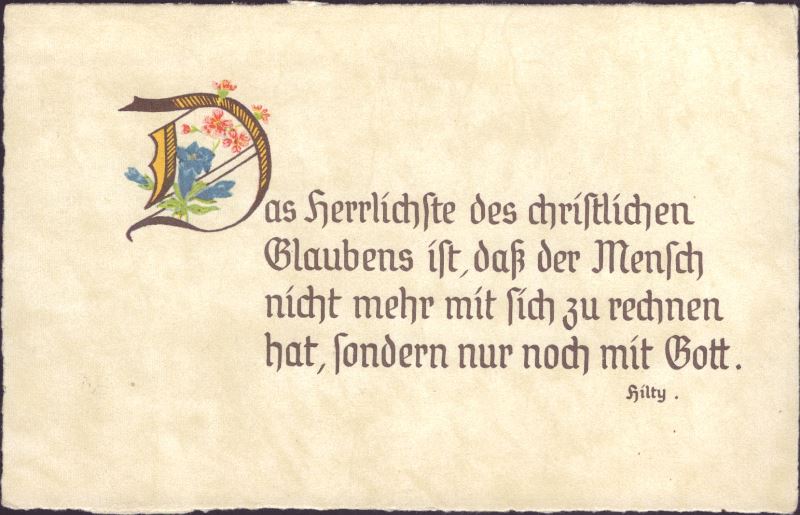 Das Herrlichſte des chriſtlichen
Glaubens iſt, daß der Menſch
nicht mehr mit ſich zu rechnen
hat, ſondern nur noch mit Gott.
Hilty.